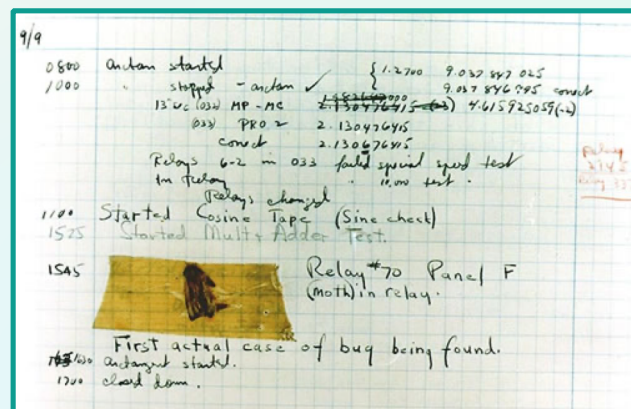 9/9
0800 antan started
1000 " stopped - antan ✓ { 1.2700 9.037 847 025
9.037 846 995 correct
13"uc (032) MP-MC 2.130476415 (-3) 4.615925059(-2)
(033) PRO 2 2.130476415
correct 2.130676415
Relays 6-2 in 033 failed special speed test
in Relay " 10,000 test.
Relay
2145
Relay 337
Relays changed
1100 Started Cosine Tape (Sine check)
1525 Started Mult + Adder Test.
1545 Relay #70 Panel F
(moth) in relay.
First actual case of bug being found.
1630 antangent started.
1700 closed down.